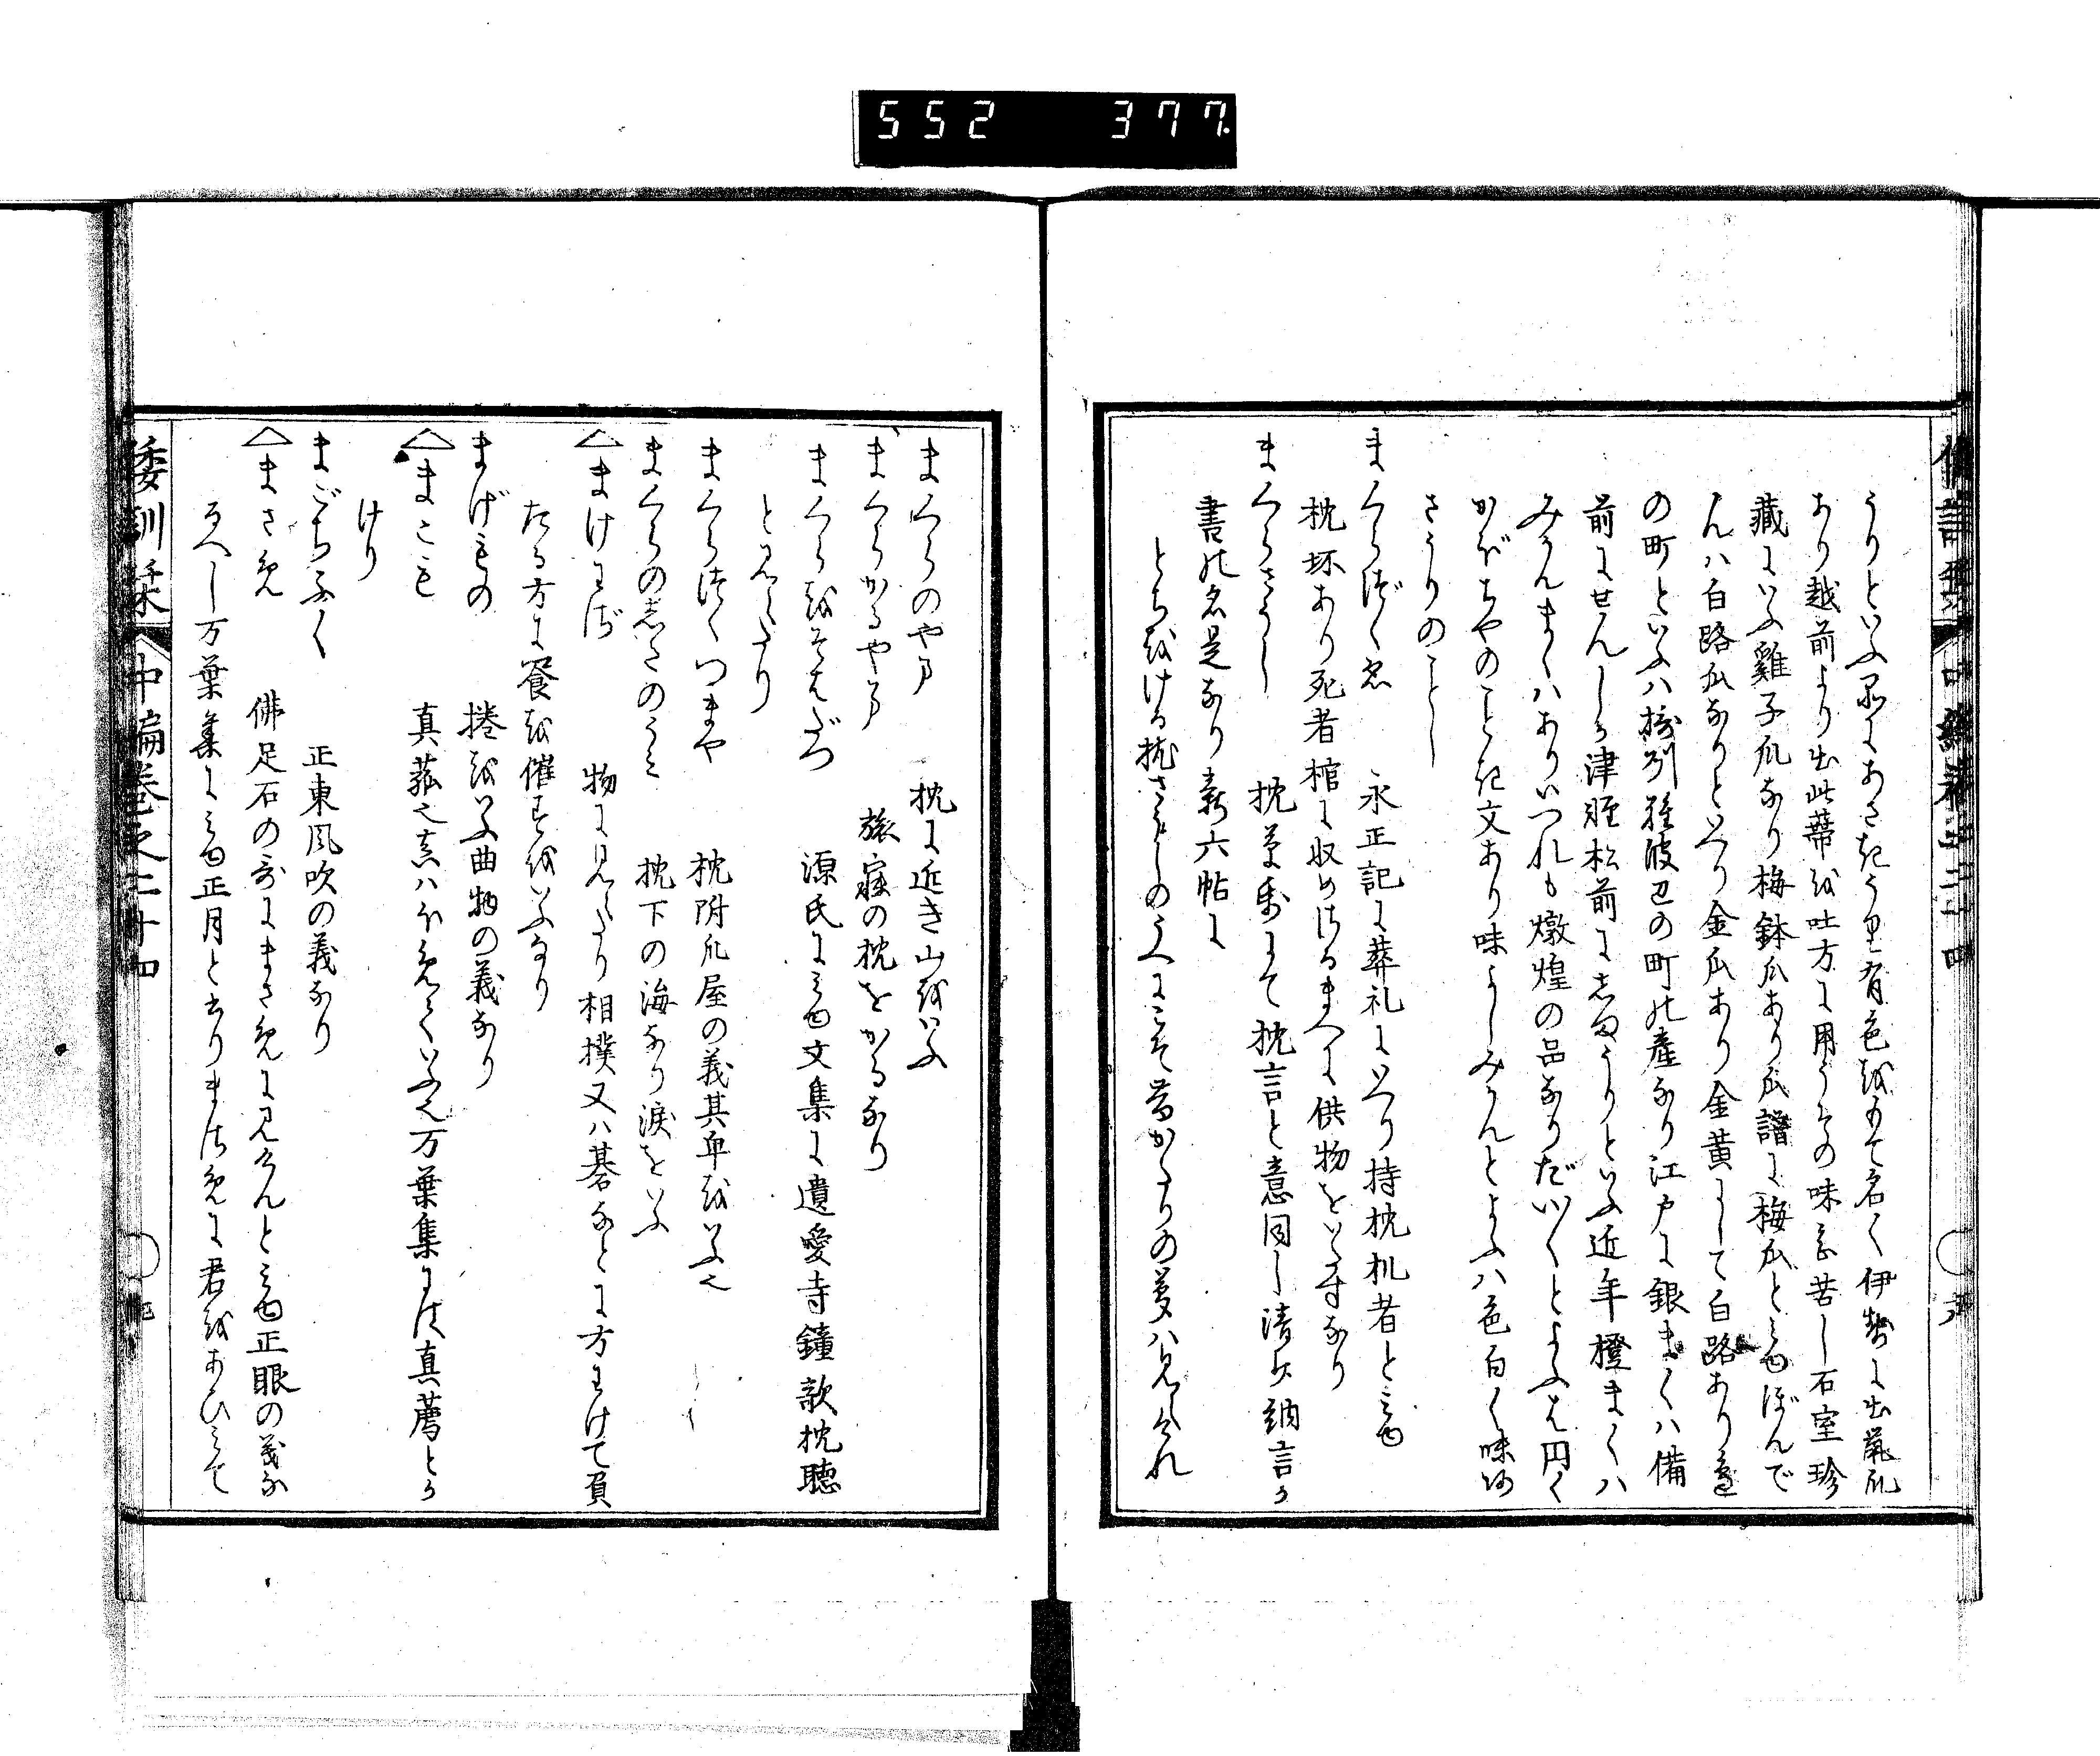 552 377
うりといふ県にあさきうり有色をもて名く伊勢に出菟瓜
あり越前より出此蔕を吐方に用うその味至苦し石室珍
蔵にいふ雞子瓜なり梅鉢瓜あり瓜譜に梅瓜と見ゆぼんで
んハ白路瓜なりといへり金瓜あり金黄にして白路あり
の町といふハ接列難波辺の町の産なり江戸に銀まくハ備
前にせんしう津軽松前にしまうりといふ近年橙まくハ
みかんまくハありいつれも燉煌の品なりだいくとよふは円く
かぼちやのことき文あり味よしみかんとよふハ色白く味
さうりのことし
まくらづくゑ 永正記に葬礼にいへり持枕机者と見ゆ
枕坏あり死者棺に収めさるまへに供物をいたすなり
まくらさうし 枕草紙にて枕言と意同し清少納言か
書の名是なり新六帖に
とちをける枕さうしのうへにこそ昔かたりの夢ハ見へけれ
まくらのやま 枕に近き山をいふ
まくらかるやま 旅寝の枕をかるなり
まくらをそはだつ 源氏に見ゆ文集に遺愛寺鐘欹枕聴
と見えたり
まくらつくつまや 枕附爪屋の義其余をいふ也
まくらのしたのうミ 枕下の海なり涙をいふ
△まけわざ 物に見えたり相撲又ハ碁なとに方わけて負
たる方に饗を催すをいふなり
まげもの 捲をいふ曲物の義なり
△まこも 真菰也真ハほめていふ也万葉集にハ真薦とか
けり
まごちふく 正東風吹の義なり
△まさめ 佛足石の哥にまさめに見けんと見ゆ正眼の義な
るへし万葉集に見ゆ正月と云りまさめに君をあひみて
倭訓栞 中編巻之二十四